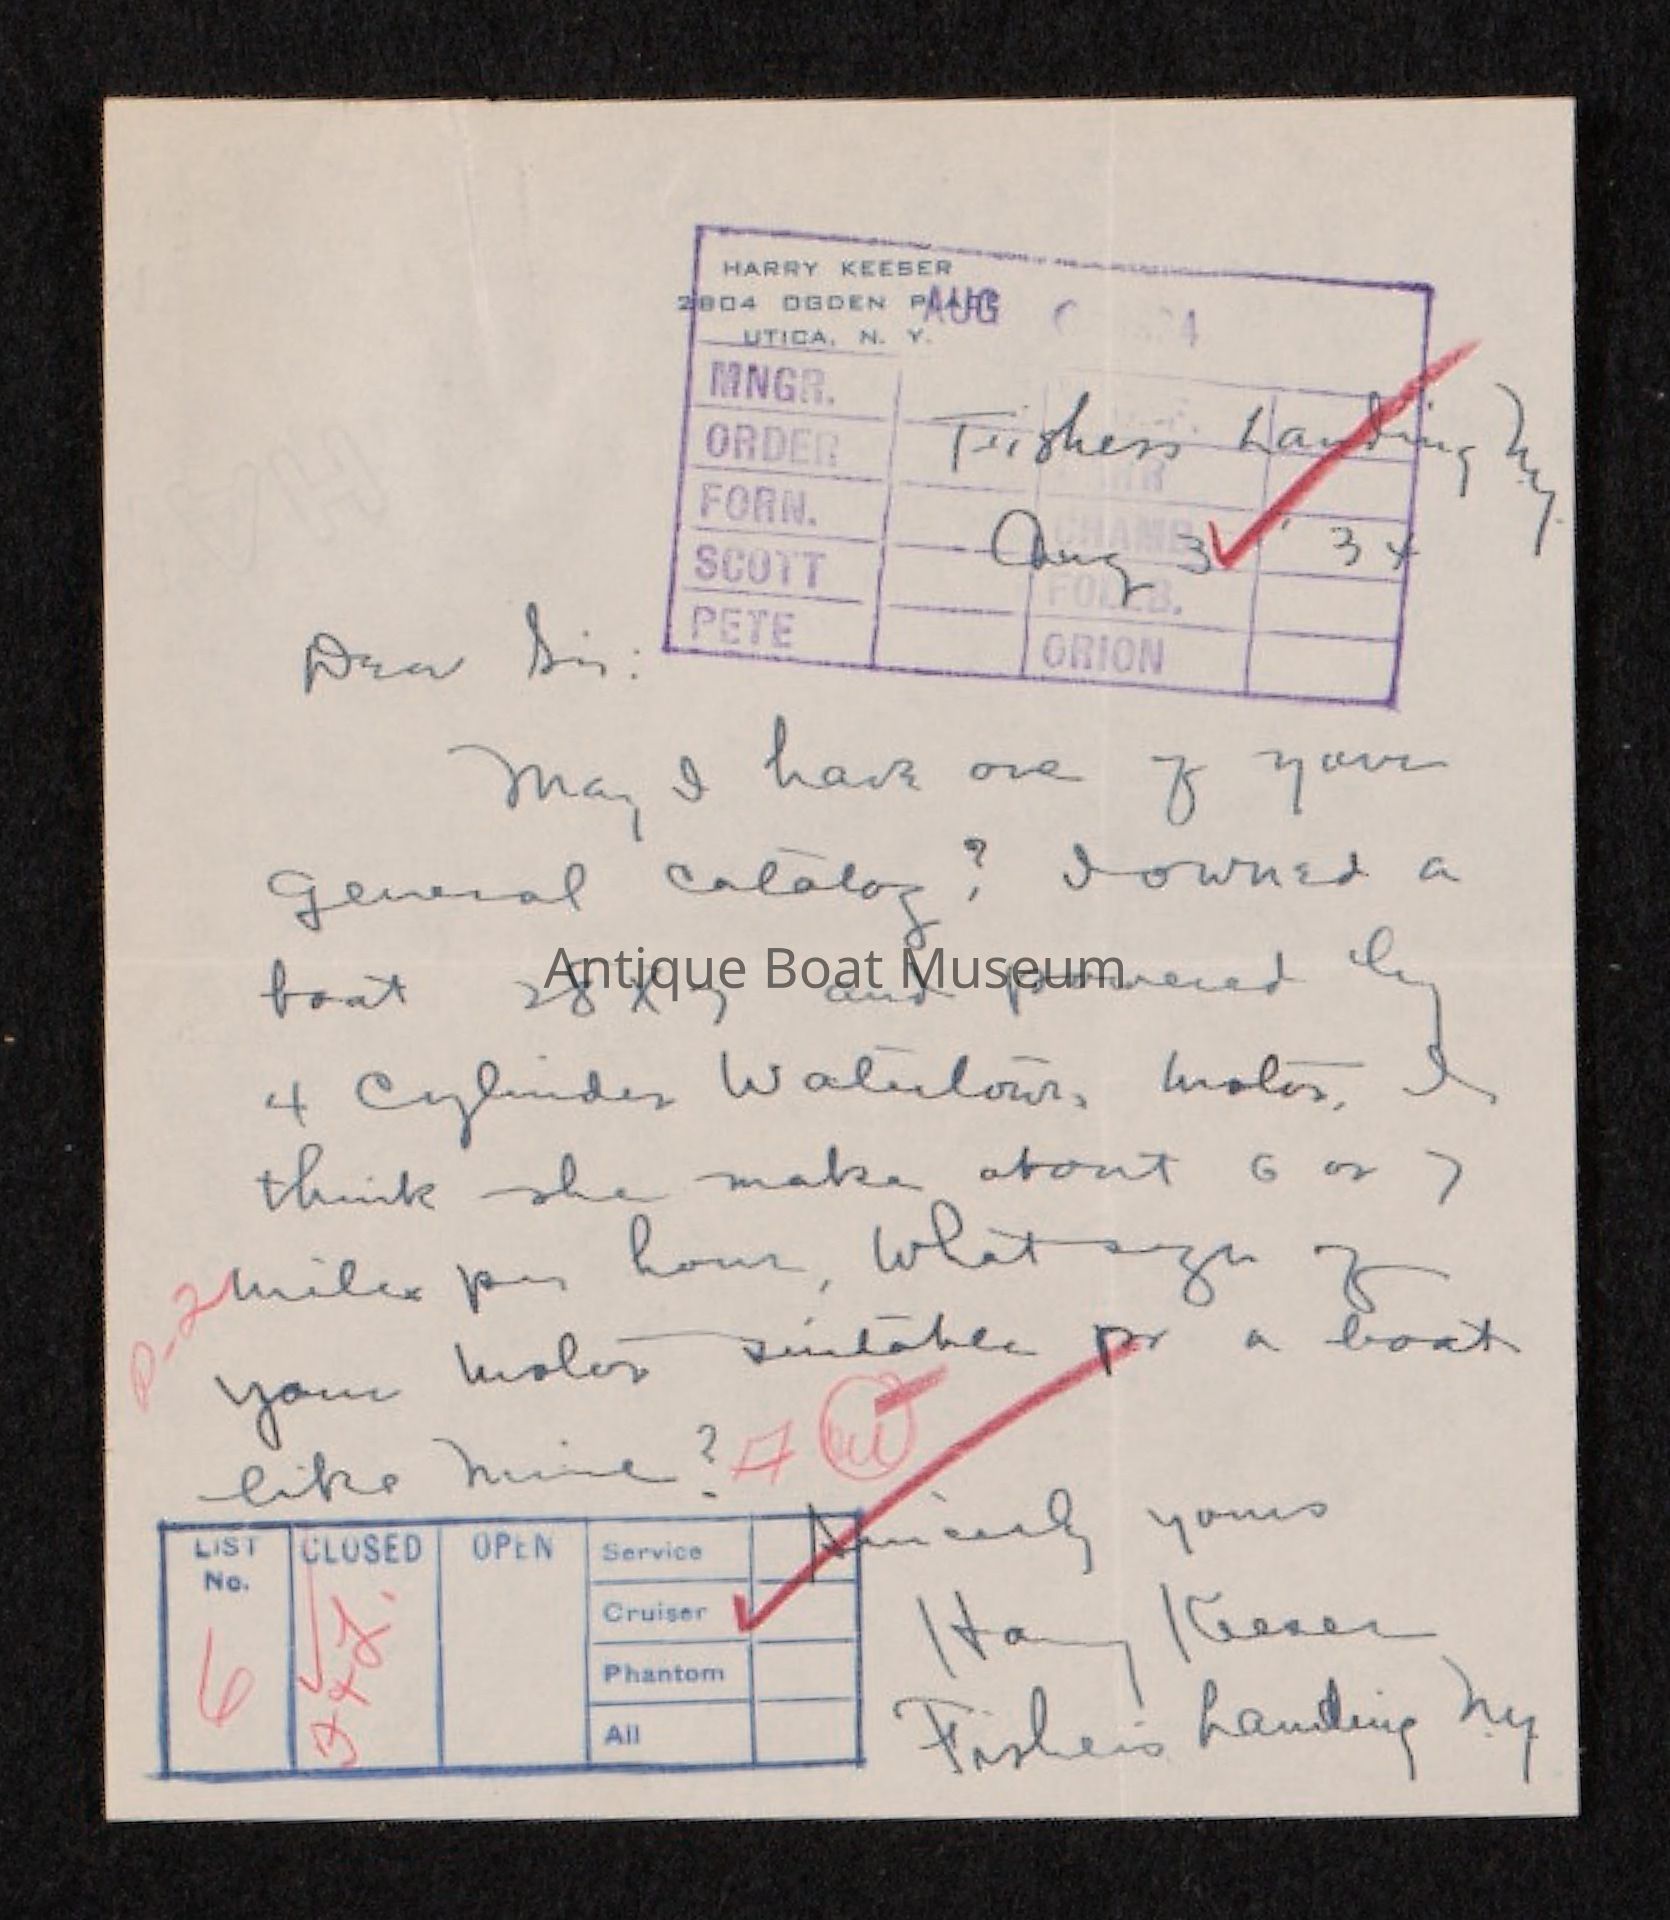 HARRY KEESER
2804 OGDEN PLACE
UTICA, N. Y.
AUG 4
MNGR.
ORDER
FORN.
SCOTT
PETE
CHAMB.
FOLLB.
ORION
Fishers Landing N.Y.
Aug 3 ' 34
Dear Sir:
May I have one of your
General Catalog? I owned a
boat 28 X 7 and powered by
4 Cylinder Watertown motor, I
think she make about 6 or 7
miles per hour, What size of
your motor suitable for a boat
like mine?
P-2
Sincerly yours
Harry Keeser
Fishers Landing N.Y.
LIST No.
CLOSED
OPEN
Service
Cruiser
Phantom
All
6
Antique Boat Museum